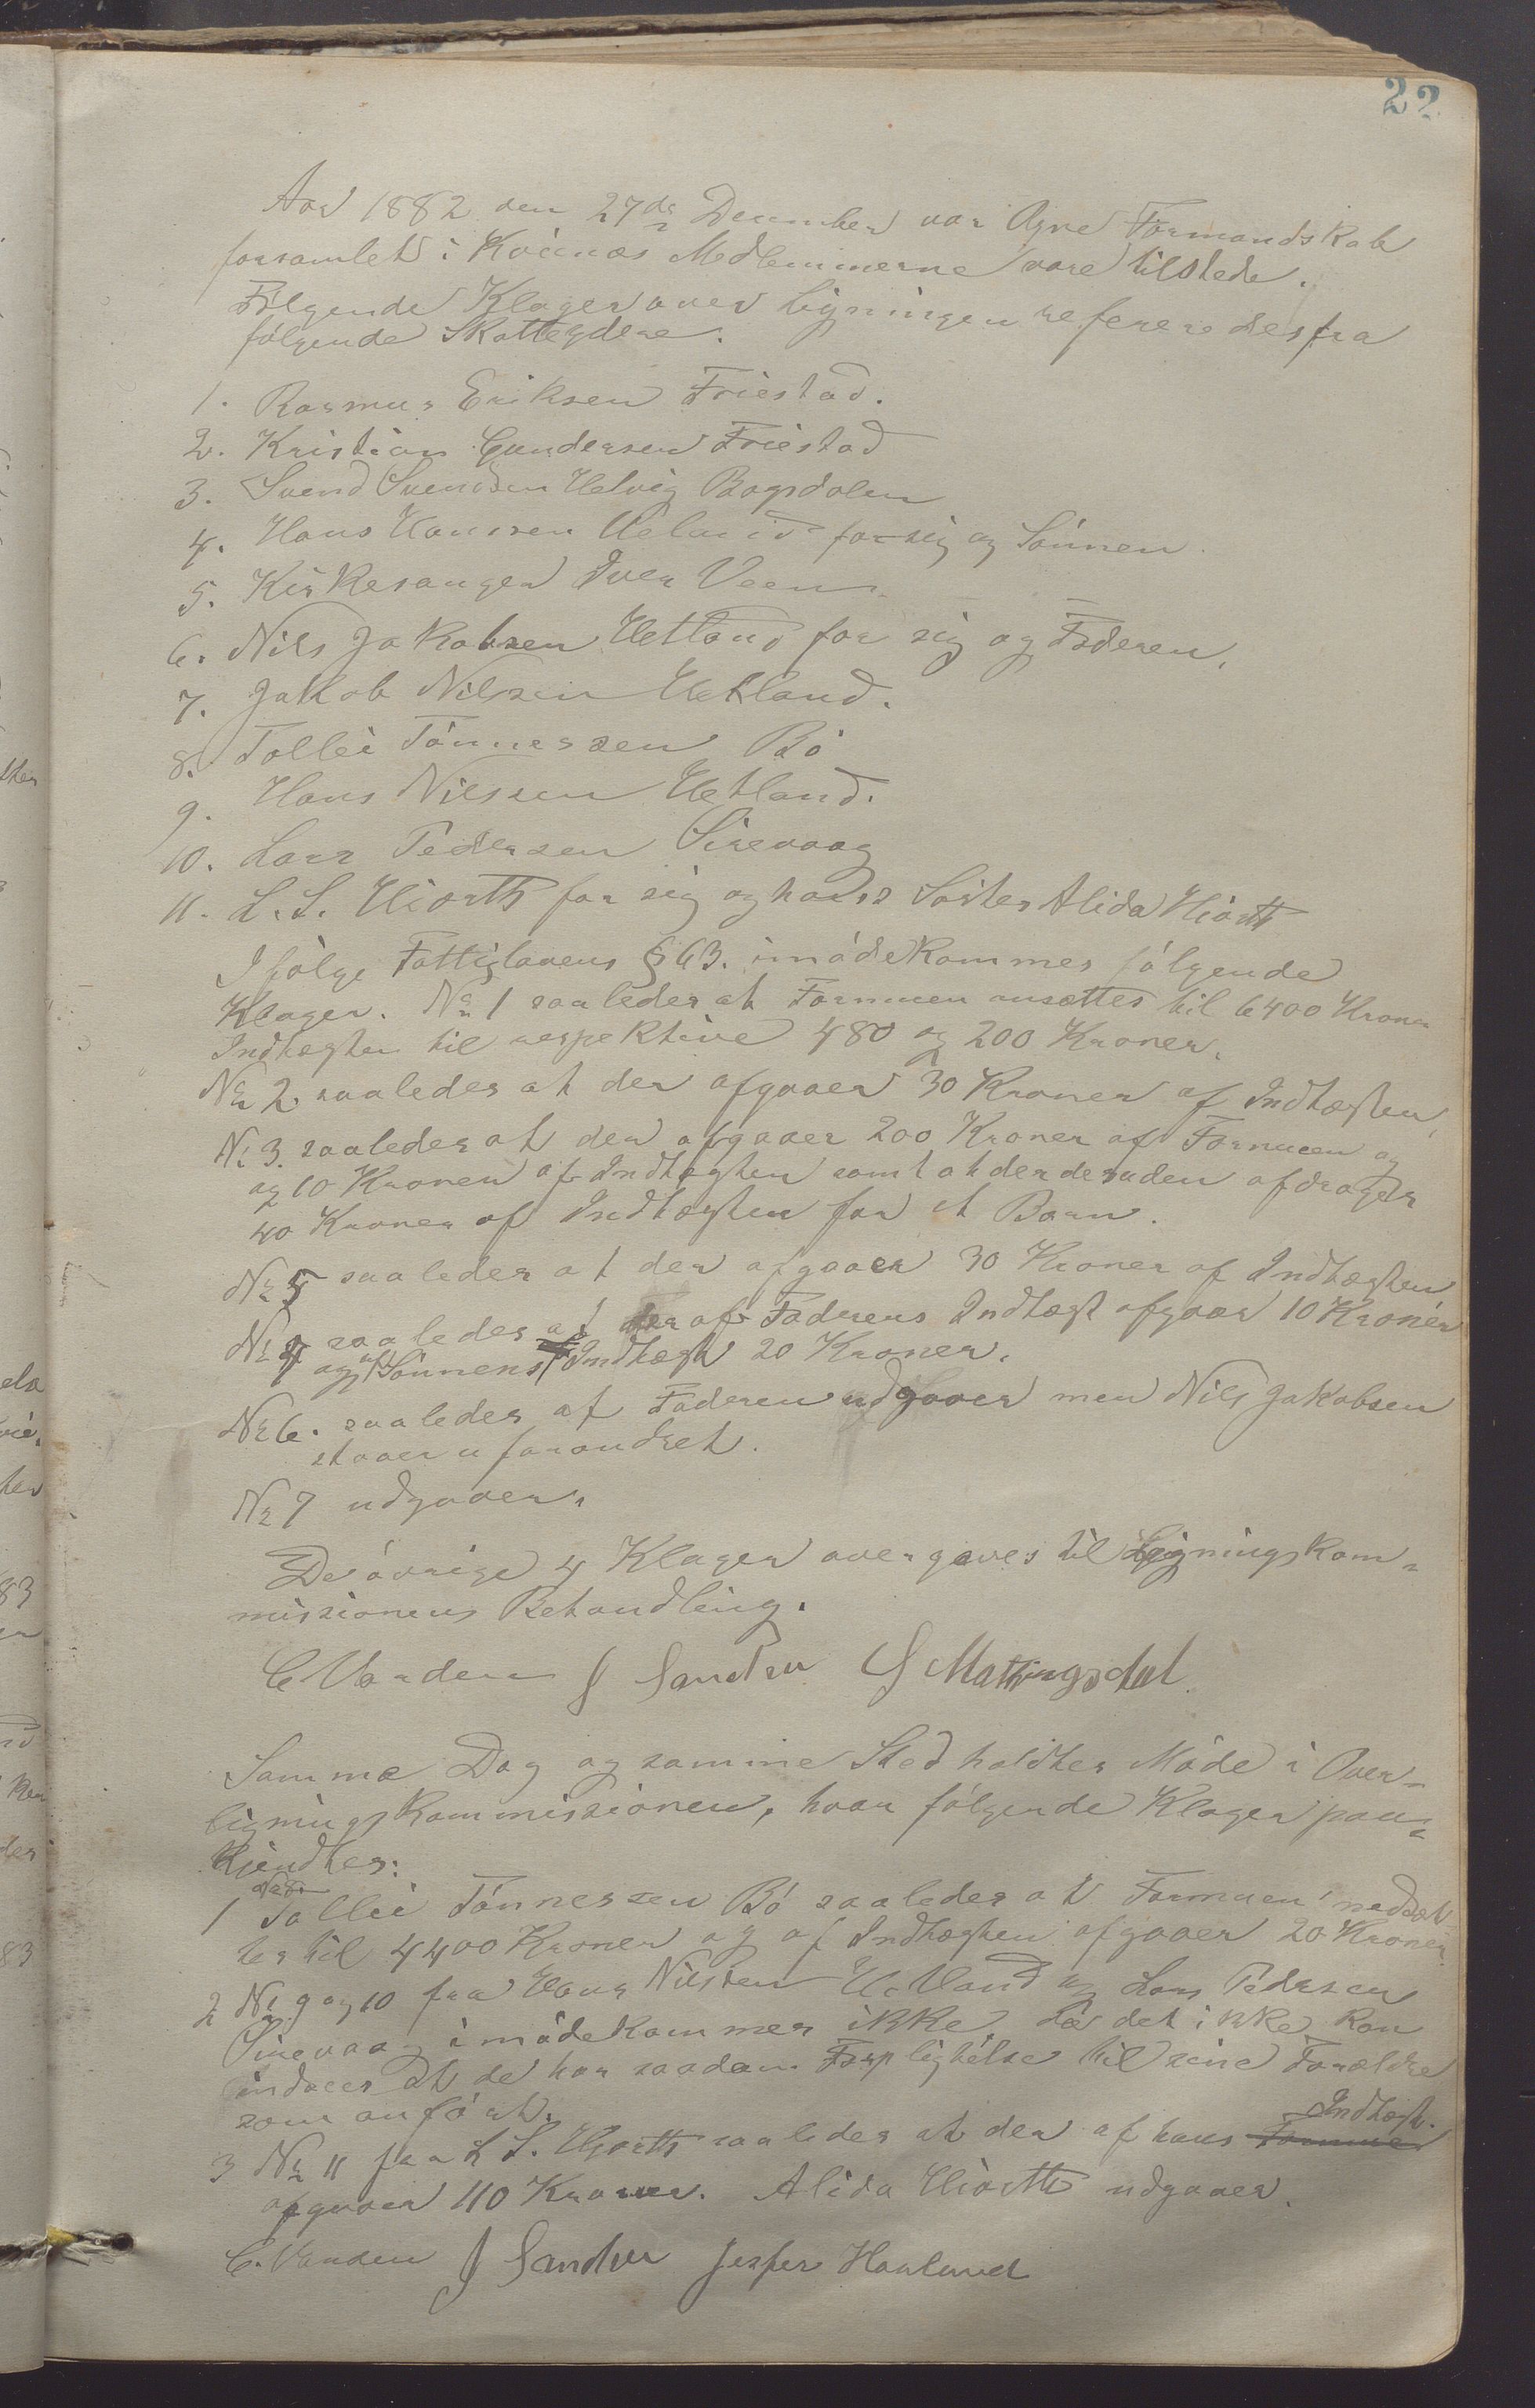 22
Aar 1882 den 27de December var Ogne Formandskab
forsamlet i Kvinnæs Medlemmerne vare tilstede.
Følgende Klager over Ligningen refereredes fra
følgende Skatteydere.
1. Rasmus Eriksen Friestad.
2. Kristian Gundersen Friestad
3. Svend Svendsen Helvig Bogsdalen
4. Hans Hansen Ueland for sig og Sönnen
5. Kirkesanger Iver Veen
6. Nils Jakobsen Hetland for sig og Faderen.
7. Jakob Nilsen Hetland.
8. Tollei Tönnessen Bö
9. Hans Nilssen Hetland.
10. Lars Pedersen Sirevaag
11. L. S. Hiorth for sig og hans Söster Alida Hiorth
Ifölge Fattiglovens § 63. imödekommes fölgende
Klager. No 1 saaledes at Formuen ansættes til 6400 Kroner
Indtægten til respektive 480 og 200 Kroner.
No 2. saaledes at der afgaaer 30 Kroner af Indtægten,
No 3. saaledes at der afgaaer 200 Kroner af Formuen og
og 10 Kroner af Indtægten samt at der desuden afdrages
40 Kroner af Indtægten for et Barn.
No 5 saaledes at der afgaaer 30 Kroner af Indtægten
No 4 saaledes at der af Faderens Indtægt afgaar 10 Kroner
og af Sönnens Indtægt 20 Kroner.
No 6. saaledes at Faderen udgaaer men Nils Jakobsen
staaer uforandret.
No 7 udgaaer.
De övrige 4 Klager overgaves til Ligningskom-
missionens Behandling.
C Vanden J Sandve S Mattingsdal.
Samme Dag og samme Sted holdtes Möde i Over-
ligningskommissionen, hvor fölgende Klager paa-
kjendtes:
No 8.
1 Tollei Tönnessen Bö saaledes at Formuen nedsæt
tes til 4400 Kroner og af Indtægten afgaaer 20 Kroner
2 No 9 og 10 fra Hans Nilssen Hetland og Lars Pedersen
Sirevaag imödekommes ikke da det ikke kan
indsees at de har saadan Forpligtelse til sine Forældre
som anfört.
Indtægt.
3 No 11 fra L S. Hjorth saaledes at der af hans Formue
afgaaer 110 Kroner. Alida Hiorth udgaaer.
C. Vanden J Sandve Jesper Haaland